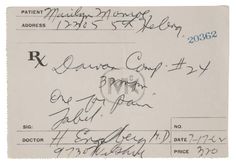 PATIENT Marilyn Monroe
ADDRESS 12305 5th Helena
20362
Rx Darvon Comp #24
One for pain
Label
SIG:
DOCTOR H Engelberg M.D. DATE 7-17-62
9730 Wilshire PRICE 370